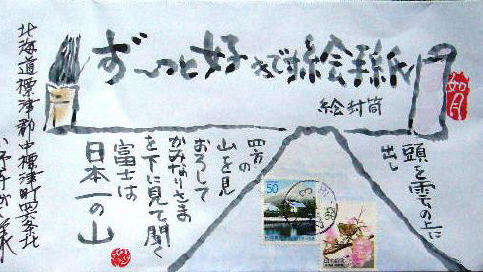 ず〜っと好きです絵手紙
絵封筒
如月
頭を雲の上に
出し
四方の
山を見
おろして
かみなりさま
を下に見て聞く
富士は
日本一の山
50
北海道標津郡中標津町